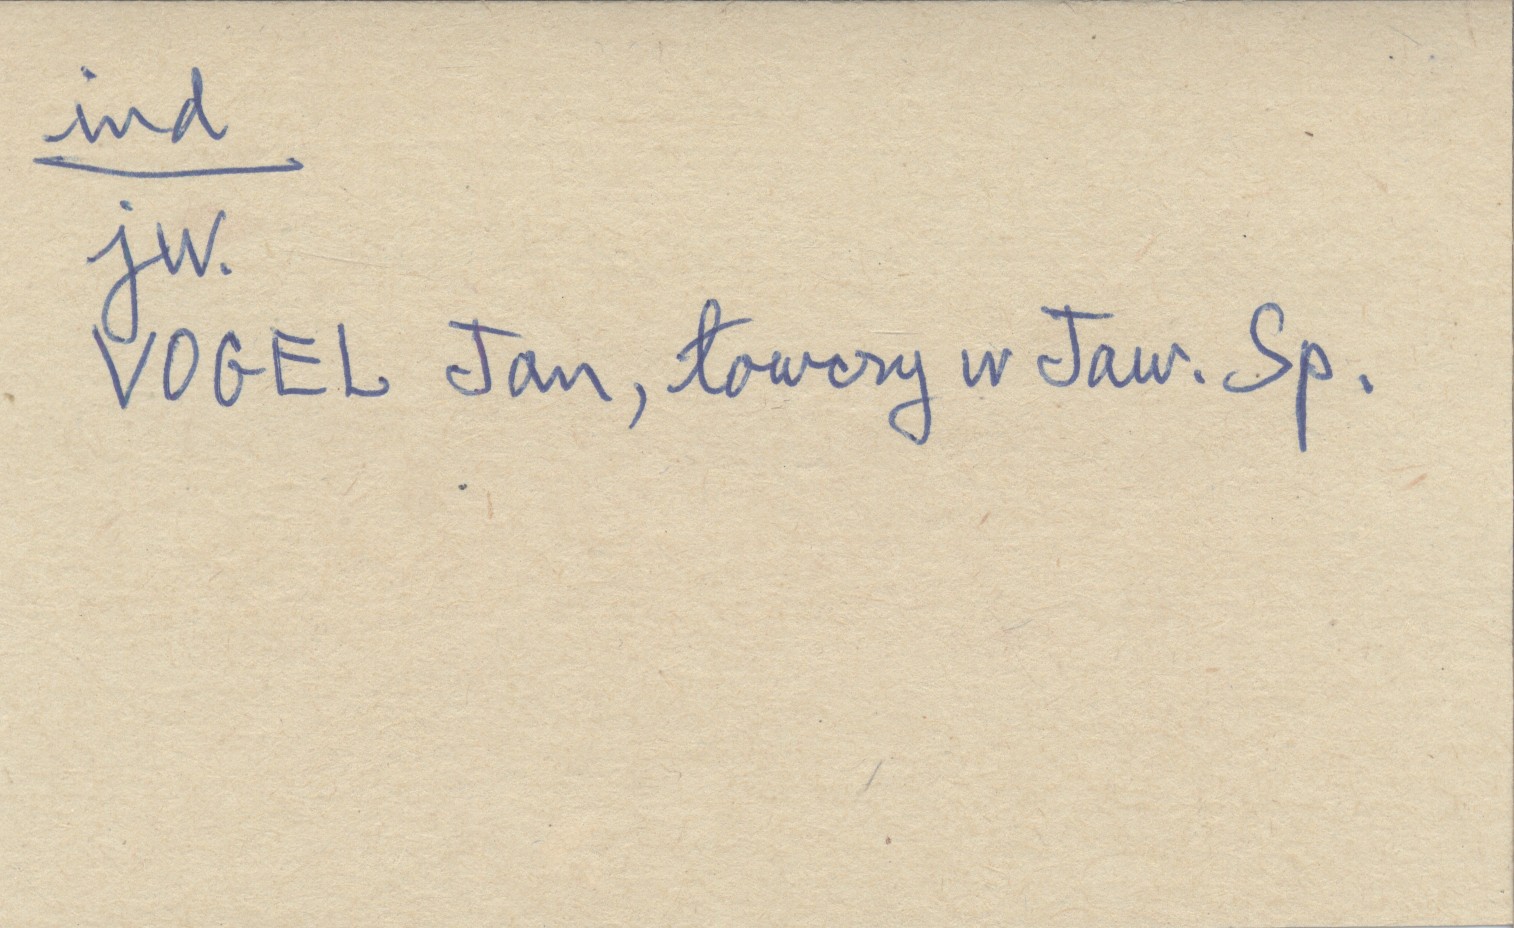 ind
jw.
VOGEL Jan, łowczy w Jaw. Sp.